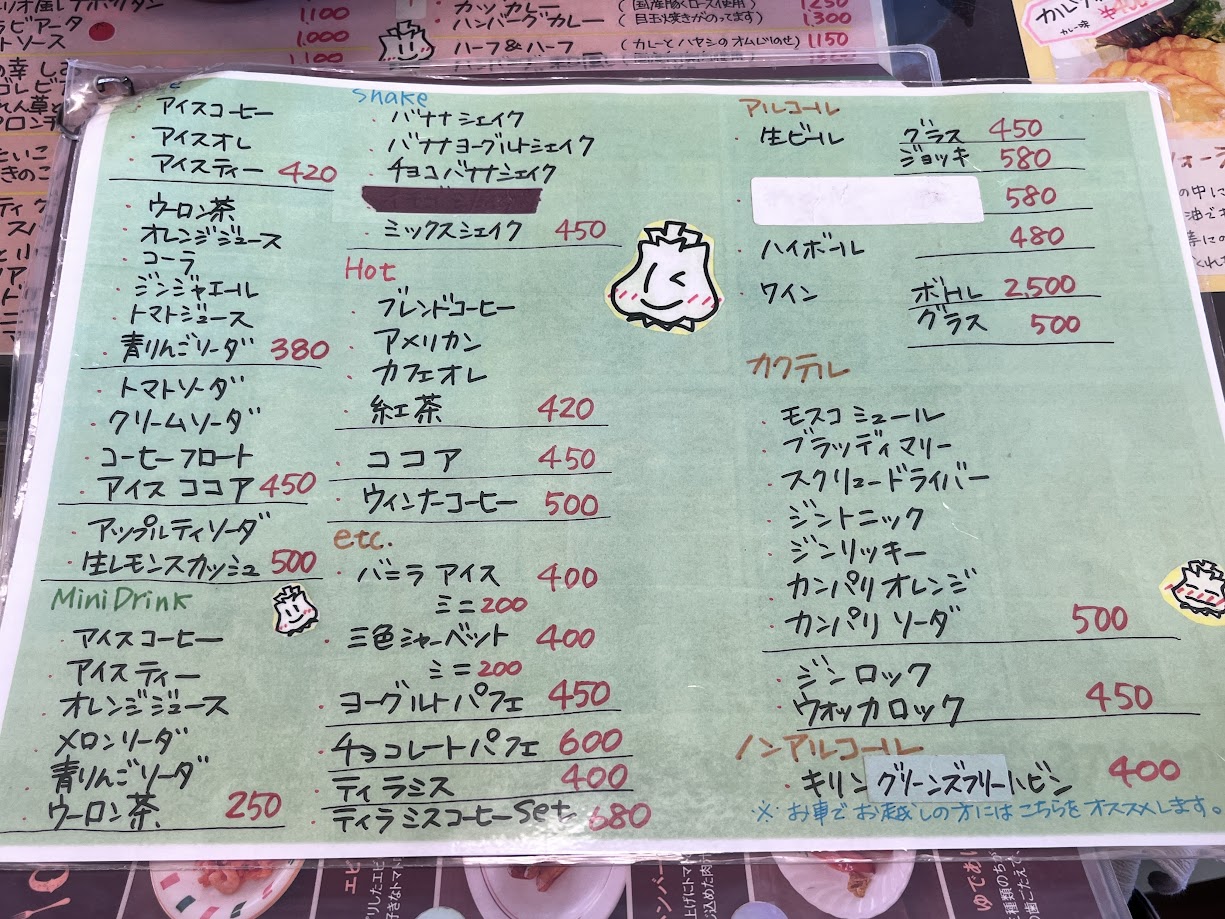 1,100
ラビアータ
トソース 1,000
の幸 1,100
カツカレー (国産豚ロース使用) 1,250
ハンバーグカレー (目玉焼きがのってます) 1,300
ハーフ&ハーフ (カレーとハヤシのオムレツのせ) 1150
アイスコーヒー
アイスオレ
アイスティー 420
ウーロン茶
オレンジジュース
コーラ
ジンジャエール
トマトジュース
青りんごソーダ 380
トマトソーダ
クリームソーダ
コーヒーフロート
アイス ココア 450
アップルティソーダ
生レモンスカッシュ 500
Mini Drink
アイスコーヒー
アイスティー
オレンジジュース
メロンソーダ
青りんごソーダ
ウーロン茶 250
shake
バナナシェイク
バナナヨーグルトシェイク
チョコバナナシェイク
ミックスシェイク 450
Hot
ブレンドコーヒー
アメリカン
カフェオレ
紅茶 420
ココア 450
ウィンナーコーヒー 500
etc.
バニラ アイス 400
ミニ 200
三色シャーベット 400
ミニ 200
ヨーグルトパフェ 450
チョコレートパフェ 600
ティラミス 400
ティラミスコーヒーset 680
アルコール
生ビール グラス 450
ジョッキ 580
580
ハイボール 480
ワイン ボトル 2,500
グラス 500
カクテル
モスコミュール
ブラッディマリー
スクリュードライバー
ジントニック
ジンリッキー
カンパリオレンジ
カンパリソーダ 500
ジン ロック
ウォッカロック 450
ノンアルコール
キリン グリーンズフリー小ビン 400
※お車でお越しの方にはこちらをオススメします。